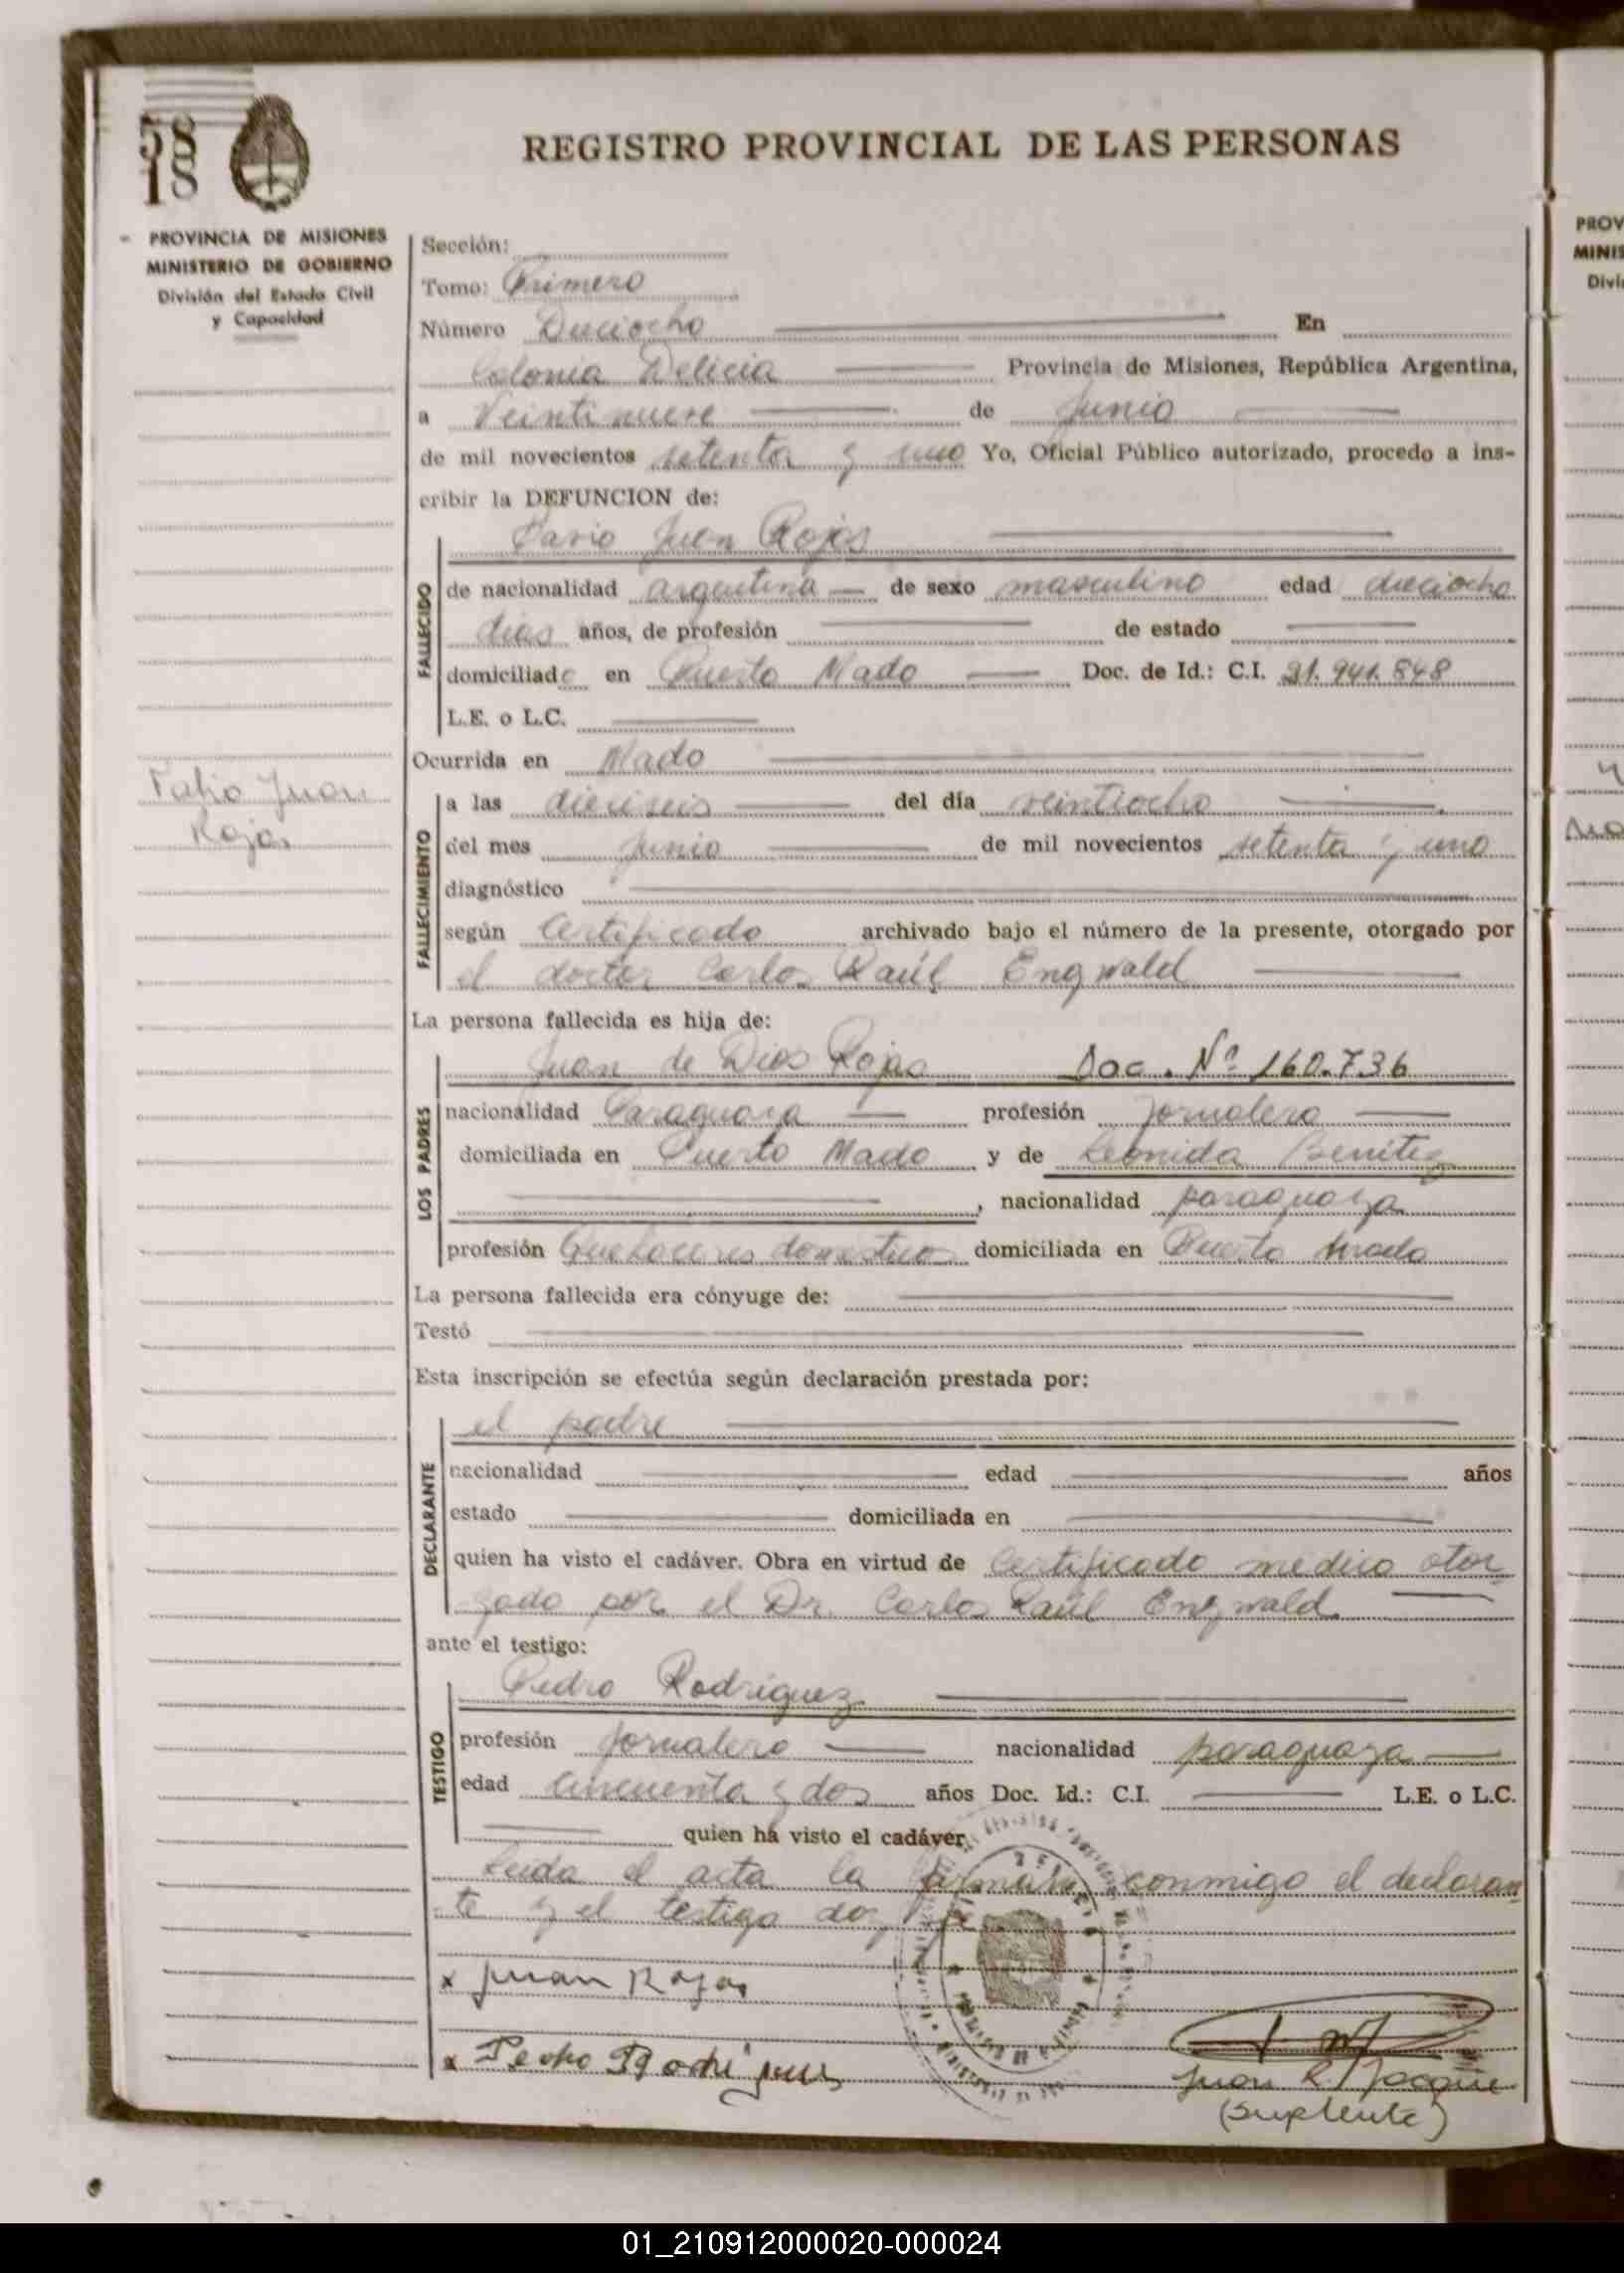 58
18
REGISTRO PROVINCIAL DE LAS PERSONAS
PROVINCIA DE MISIONES
MINISTERIO DE GOBIERNO
División del Estado Civil
y Capacidad
Sección:
Tomo: Primero
Número Dieciocho En
Colonia Delicia Provincia de Misiones, República Argentina,
a Veintinueve de Junio
de mil novecientos setenta y uno Yo, Oficial Público autorizado, procedo a ins-
cribir la DEFUNCION de:
Juan Rojas
FALLECIDO
de nacionalidad argentina de sexo masculino edad dieciocho
dias años, de profesión de estado
domiciliado en Puerto Mado Doc. de Id.: C.I. 21.941.848
L.E. o L.C.
Ocurrida en Mado
Juan
Rojas
FALLECIMIENTO
a las dieciseis del día veintiocho
del mes junio de mil novecientos setenta y uno
diagnóstico
según Certificado archivado bajo el número de la presente, otorgado por
el doctor Carlos Raúl Engwald
La persona fallecida es hija de:
LOS PADRES
Juan de Dios Rojas Doc. Nº 160.736
nacionalidad Paraguaya profesión Jornalero
domiciliada en Puerto Mado y de Leonida Benitez
, nacionalidad paraguaya
profesión Quehaceres domesticos domiciliada en Puerto Mado
La persona fallecida era cónyuge de:
Testó
Esta inscripción se efectúa según declaración prestada por:
DECLARANTE
el padre
nacionalidad edad años
estado domiciliada en
quien ha visto el cadáver. Obra en virtud de Certificado medico otor-
gado por el Dr. Carlos Raúl Engwald
ante el testigo:
TESTIGO
Pedro Rodriguez
profesión Jornalero nacionalidad paraguaya
edad cincuenta y dos años Doc. Id.: C.I. L.E. o L.C.
quien ha visto el cadáver.
Leida el acta la firman conmigo el declaran
te y el testigo doy fe
x Juan Rojas
x Pedro Rodriguez
Juan R.
(Suplente)
PROV
MINIS
Divi
01_210912000020-000024